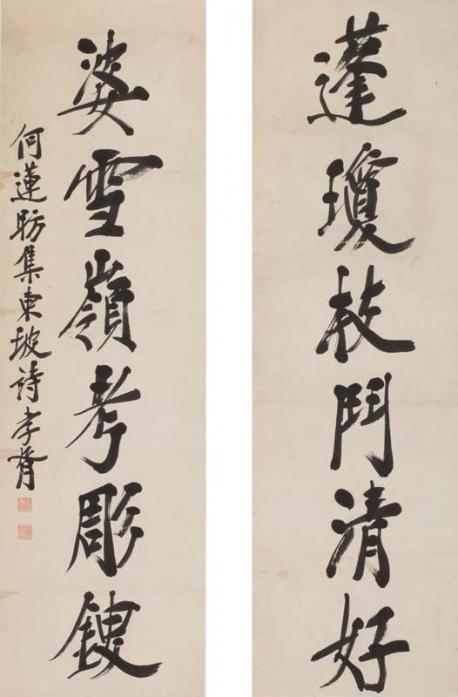 蓬瓊枝鬥清好
婆雪嶺考彫鎪
何蓮舫集東坡詩 孝胥